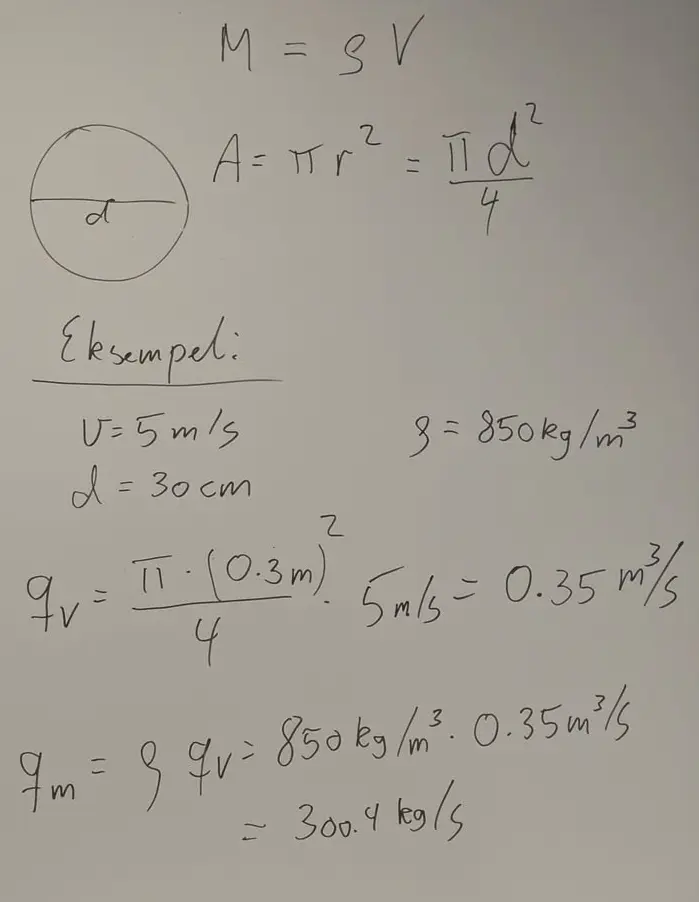 M = ρV
A = πr² = πd²/4
d
Eksempel:
v = 5 m/s
ρ = 850 kg/m³
d = 30 cm
qᵥ = π · (0.3 m)²/4 · 5 m/s = 0.35 m³/s
qₘ = ρ qᵥ = 850 kg/m³ · 0.35 m³/s
= 300.4 kg/s